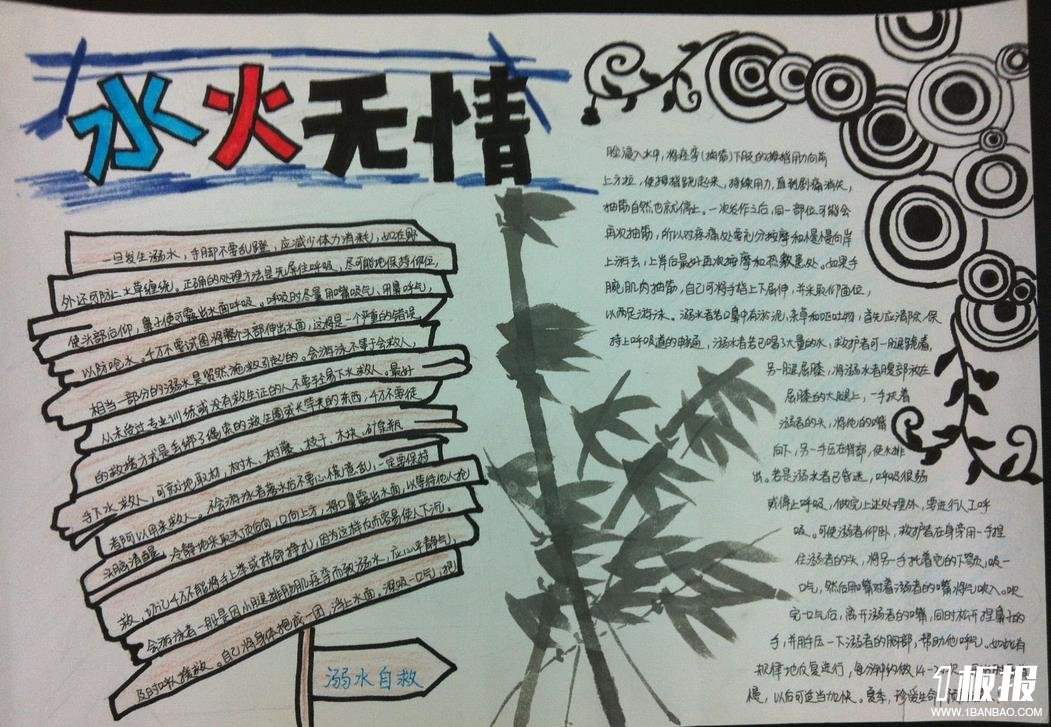 水火无情
一旦发生溺水，手脚不要乱蹬，应减少体力消耗，如在野
外还可防止水草缠绕。正确的处理方法是先屏住呼吸，尽可能地保持仰位，
使头部后仰，鼻子便可露出水面呼吸。呼吸时尽量用嘴吸气、用鼻呼气，
以防呛水。千万不要试图将整个头部伸出水面，这将是一个严重的错误
相当一部分的溺水是贸然施救引起的。会游泳不等于会救人，
从未经过专业训练或没有救生证的人不要轻易下水救人。最好
的救援方式是丢绑了绳索的救生圈或长竿类的东西，千万不要徒
手下水救人，可就地取材，树木、树藤、枝干、木块、矿泉瓶
都可以用来救人。不会游泳者落水后不要心慌意乱，一定要保持
头脑清醒，冷静地采取头顶向后，口向上方，将口鼻露出水面，以等待他人抢
救，切记千万不能将手上举或拼命挣扎，因为这样反而容易使人下沉。
会游泳者一般是因小腿腓肠肌痉挛而致溺水，应心平静气，
及时呼人援救。自己将身体抱成一团，浮上水面。深吸一口气，把
溺水自救
脸浸入水中，将痉挛(抽筋)下肢的拇指用力向前
上方拉，使拇指跷起来，持续用力，直到剧痛消失，
抽筋自然也就停止。一次发作之后，同一部位可能会
再次抽筋，所以对疼痛处要充分按摩和慢慢向岸
上游去，上岸后最好再次按摩和热敷患处。如果手
腕肌肉抽筋，自己可将手指上下屈伸，并采取仰面位，
以两足游泳。溺水者若口鼻中有淤泥、杂草和呕吐物，首先应清除，保
持上呼吸道的畅通，溺水者若已喝了大量的水，救护者可一腿跪着，
另一腿屈膝，将溺水者腹部放在
屈膝的大腿上，一手扶着
溺者的头，将他的嘴
向下，另一手压在背部，使水排
出。若是溺水者已昏迷，呼吸很弱
或停止呼吸，做完上述处理外，要进行人工呼
吸。可使溺者仰卧，救护者在身旁用一手捏
住溺者的头，将另一手托着它的下颚，吸一
口气，然后用嘴对着溺者的嘴将气吹入。吹
完一口气后，离开溺者的嘴，同时松开捏鼻子的
手，并用手压一下溺者的胸部，帮助他呼气。如此有
规律地反复进行，每分钟约做14-
慢，以后可适当加快。夏季，珍爱生命
1板报
WWW.1BANBAO.COM